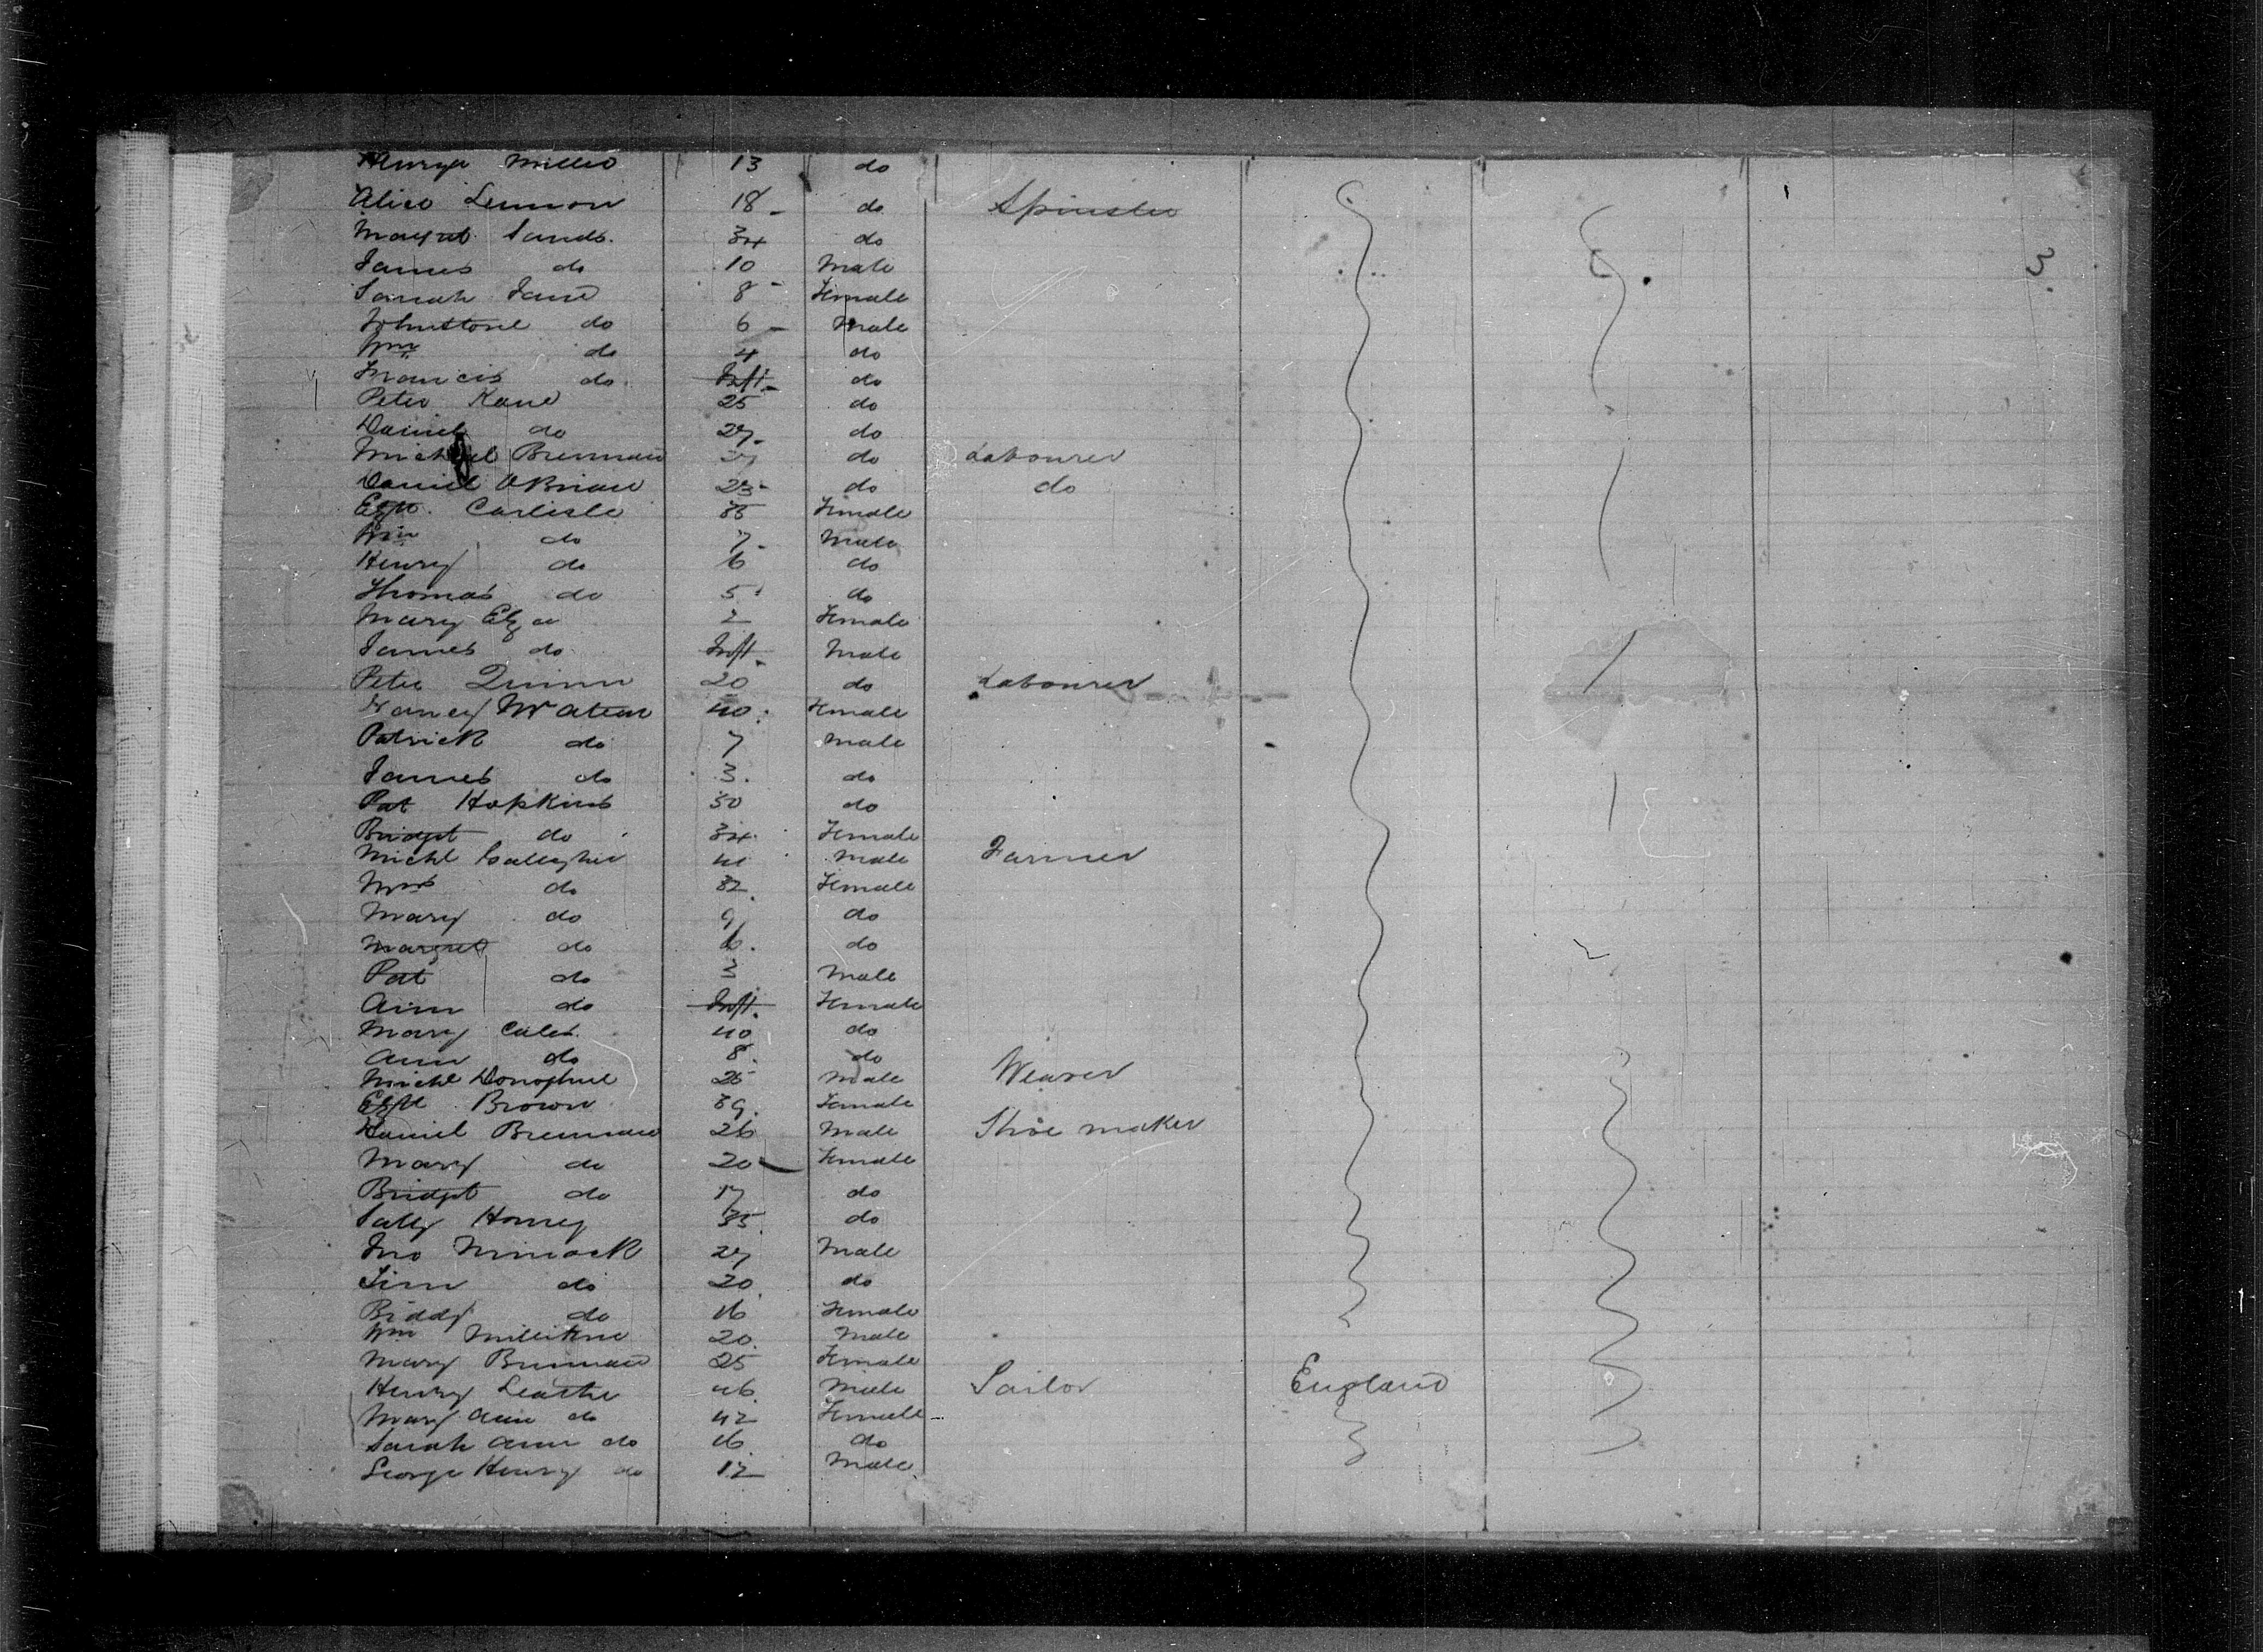 Miller 13 do
Alice Lennon 18 do Spinster
Margret Sands. 34 do
James do 10 Male
Sarah Jane 8 Female
Johnstone do 6 Male
Wm do 4 do
Francis do. Inft. do
Peter Kane 25 do
Daniel do 27 do
Michael Brennan do Labourer
Daniel OBrian 23 do do
Ezth. Carlisle 35 Female
Wm do 7 Male
Henry do 6 do
Thomas do 5 do
Mary Eliza 2 Female
James do Inft. Male
Peter Quinn 20 do Labourer
Nancy 40 Female
Patrick do 7 Male
James do 3. do
Pat Hopkins 30 do
Bridget do 34 Female
Michl Gallagher 41 Male Farmer
Mrs do 32 Female
Mary do 9 do
Margret do 6. do
Pat do 3 Male
Ann do Inft. Female
Mary 40 do
Ann do 8. do
Michl Donoghue 25 Male Weaver
Ezth Brown 39. Female
Daniel Brennan 26 Male Shoe maker
Mary do 20 Female
Bridget do 17 do
Sally Honey 35 do
Jno 27 Male
Tim do 20 do
Biddy do 16 Female
Wm Millikine 20. Male
Mary Brennan 25 Female
Henry Leathe 46. Male Sailor England
Mary Ann do 42 Female
Sarah Ann do 16. do
George Henry do 12 Male
3.